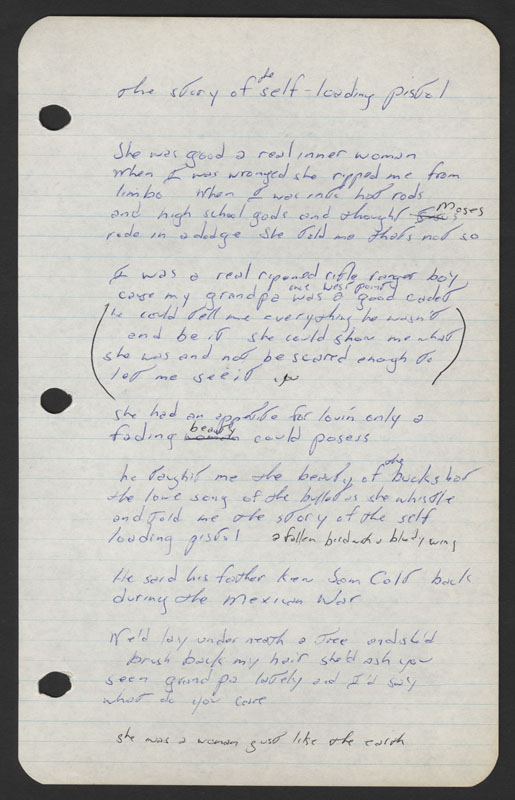 the story of the self-loading pistol
She was good a real inner woman
When I was wronged she ripped me from
limbo When I was into hot rods
and high school gods and thought Moses
rode in a dodge She told me thats not so
I was a real ripened rifle ranger boy
cause my grandpa was a good cadet
west point
he could tell me everything he wasn't
and be it she could show me what
she was and not be scared enough to
let me see it
she had an appetite for lovin only a
fading beauty could posess
he taught me the beauty of the buckshot
the love song of the bullet as she whistle
and told me the story of the self
loading pistol a fallen bird with a bloody wing
He said his father knew Sam Colt back
during the Mexican War
We'd lay under neath a tree and she'd
brush back my hair she'd ask you
seen grandpa lately and I'd say
what do you care
she was a woman just like the earth